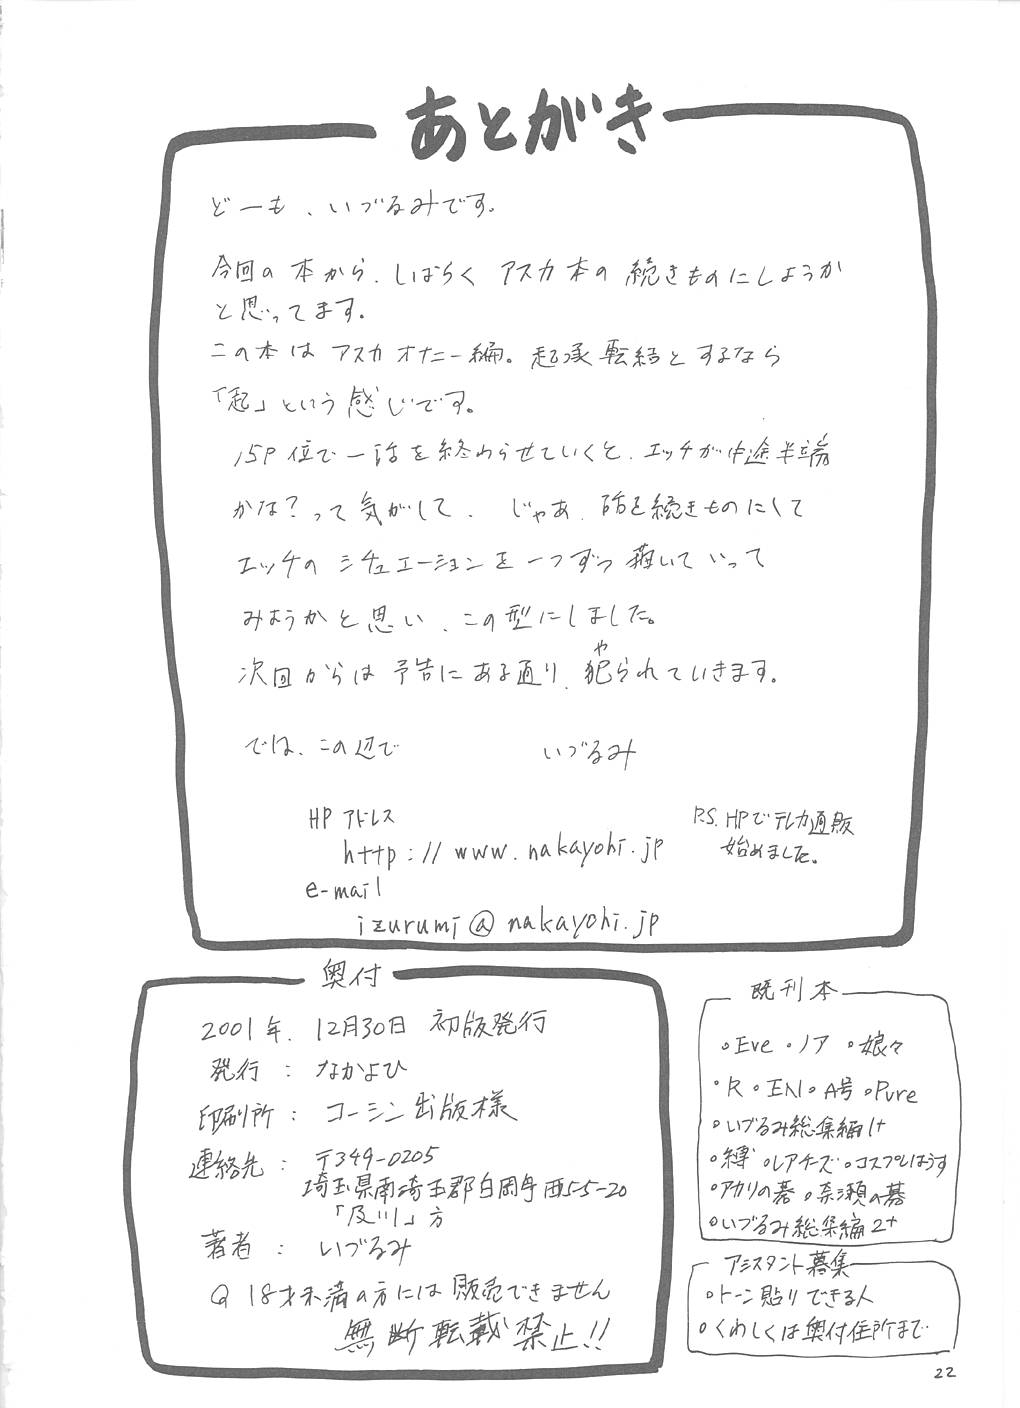 あとがき
どーも、いづるみです。
今回の本から、しばらく アスカ本の続きものにしようか
と思ってます。
この本は アスカオナニー編。起承転結とするなら
「起」という感じです。
15P位で一話を終わらせていくと、エッチが中途半端
かな?って気がして、じゃあ、話を続きものにして
エッチのシチュエーションを一つずつ描いていって
みようかと思い、この型にしました。
次回からは予告にある通り、犯(や)られていきます。
では、この辺で いづるみ
HPアドレス
http://www.nakayohi.jp
e-mail
izurumi@nakayohi.jp
P.S. HPでテレカ通販
始めました。
奥付
2001年、12月30日 初版発行
発行 : なかよひ
印刷所 : コーシン出版様
連絡先 : 〒349-0205
埼玉県南埼玉郡白岡町西5-5-20
「及川」方
著者 : いづるみ
18才未満の方には販売できません
無断転載禁止!!
既刊本
・Eve ・ノア ・娘々
・R ・EN1 ・A号 ・Pure
・いづるみ総集編1+
・縛 ・レアチーズ ・コスプレはうす
・アカリの碁 ・奈瀬の碁
・いづるみ総集編2+
アシスタント募集
・トーン貼りできる人
・くわしくは奥付住所まで
22